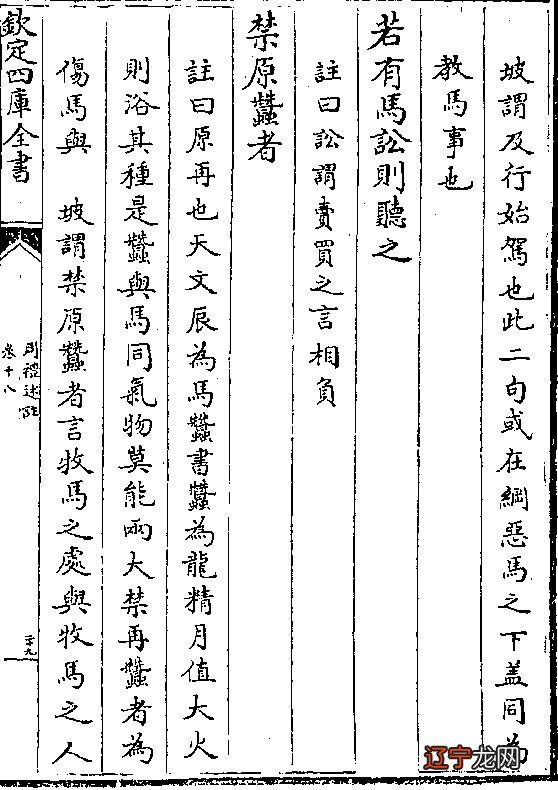 坡謂及行始駕也此二句或在綱惡馬之下盖同為
教馬事也
若有馬訟則聽之
註曰訟謂賣買之言相負
禁原蠶者
註曰原再也天文辰為馬蠶書蠶為龍精月值大火
則浴其種是蠶與馬同氣物莫能兩大禁再蠶者為
傷馬與　坡謂禁原蠶者言牧馬之處與牧馬之人
欽定四庫全書
周禮述註
卷十八
二十九
辽宁龙网